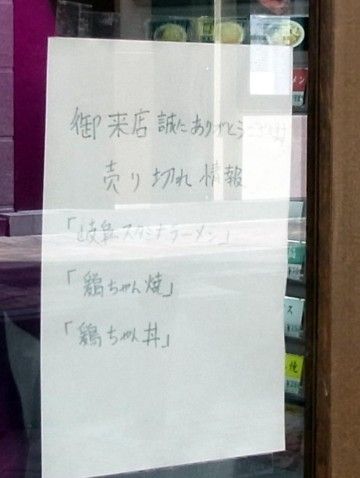 御来店誠にありがとうございます
売り切れ情報
「岐阜スタミナラーメン」
「鶏ちゃん焼」
「鶏ちゃん丼」